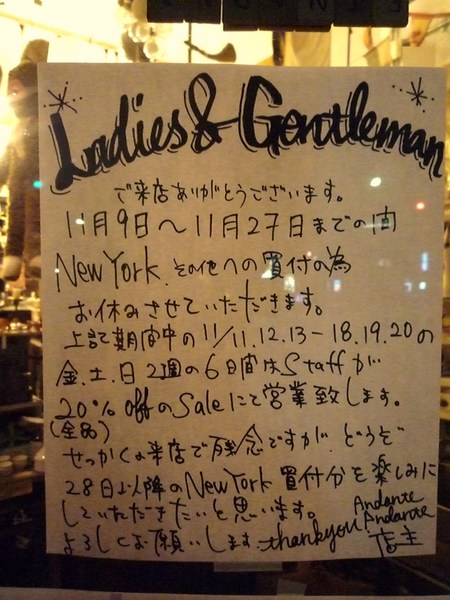 Ladies & Gentleman
ご来店ありがとうございます。
11月9日〜11月27日までの間
New York. その他への買付の為
お休みさせていただきます。
上記期間中の11/11.12.13-18.19.20の
金.土.日 2週の6日間はStaffが
20% offのSaleにて営業致します。
(全品)
せっかくの来店で残念ですが、どうぞ
28日以降のNew York 買付分を楽しみに
していただきたいと思います。
よろしくお願いします. thankyou!
Andante
Andante
店主